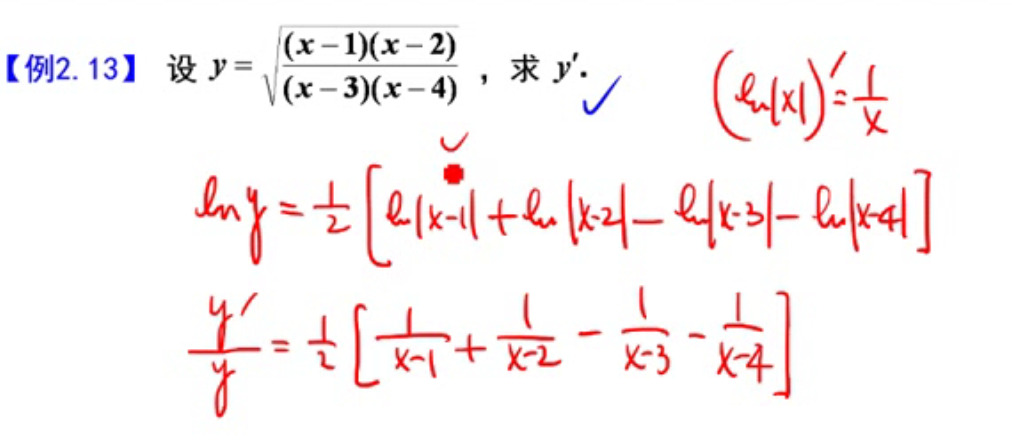 【例2.13】 设 y = √((x−1)(x−2)/((x−3)(x−4))) ，求 y′.
(ln|x|)′ = 1/x
ln y = 1/2 [ln|x-1| + ln|x-2| − ln|x-3| − ln|x-4|]
y′/y = 1/2 [1/(x-1) + 1/(x-2) − 1/(x-3) − 1/(x-4)]